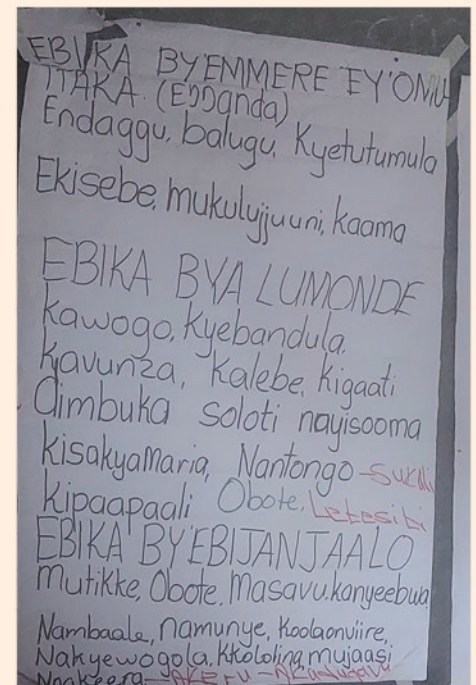 EBIKA BY'EMMERE EY'OMU
ITTAKA. (EDDanda)
Endaggu, balugu, Kyetutumula
Ekisebe, mukulujjuuni, kaama
EBIKA BYA LUMONDE
Kawogo, Kyebandula,
Kavunza, Kalebe, Kigaati
Dimbuka soloti nayisooma
KisakyaMaria, Nantongo - Sukali
Kipaapaali Obote, Letesibi
EBIKA BY'EBIJANJAALO
Mutikke, Obote, Masavu, kanyeebwa
Nambaale, namunye, Koolaonviire,
Nakyewogola, Kkololing, mujaasi